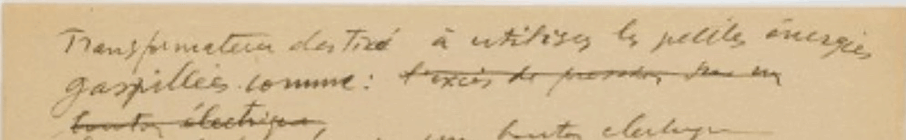 Transformateur destiné à utiliser les petites énergies
gaspillées comme : l'excès de pression sur un
bouton électrique,
un bouton électrique